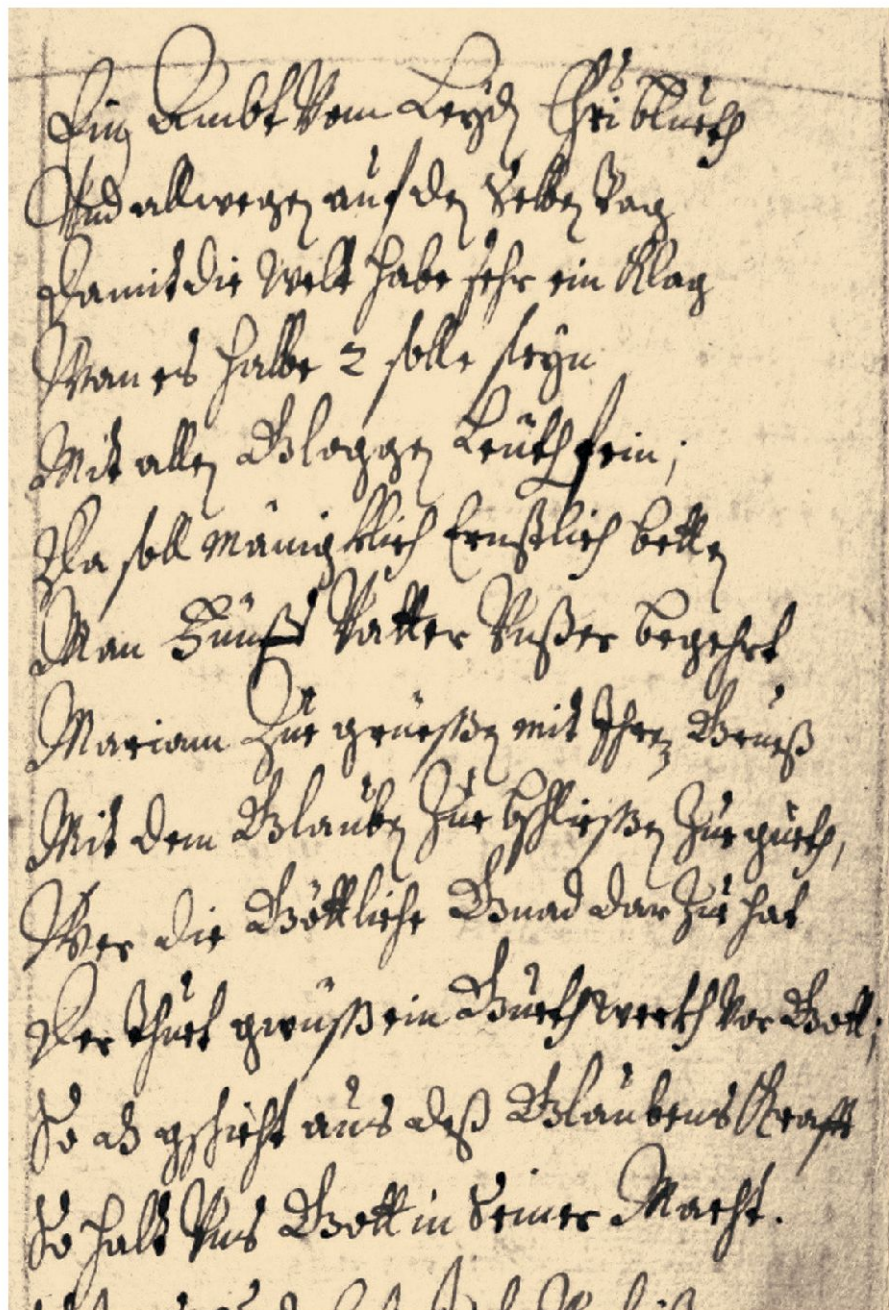 Ein Ambt Vom Leyden Chri bluoth
Und allwegen auf den Selben Tag
Damit die Welt habe sehr ein Klag
Wan es halbe 2 solle seyn
Mit allen Gloggen Leüth fein;
Da soll mänigklich Ernstlich betten
Man Vatter Unßer begehrt
Mariam Zue grüeßen mit Ihrem Grueß
Mit dem Glauben Zue bschließen Zue gueth,
Wer die Göttliche Gnad dar Zue hat
Der thuet gwüß ein Gueth werkh Vor Gott;
So aß gschicht aus deß Glaubens Krafft
So halt Uns Gott in Seiner Macht.